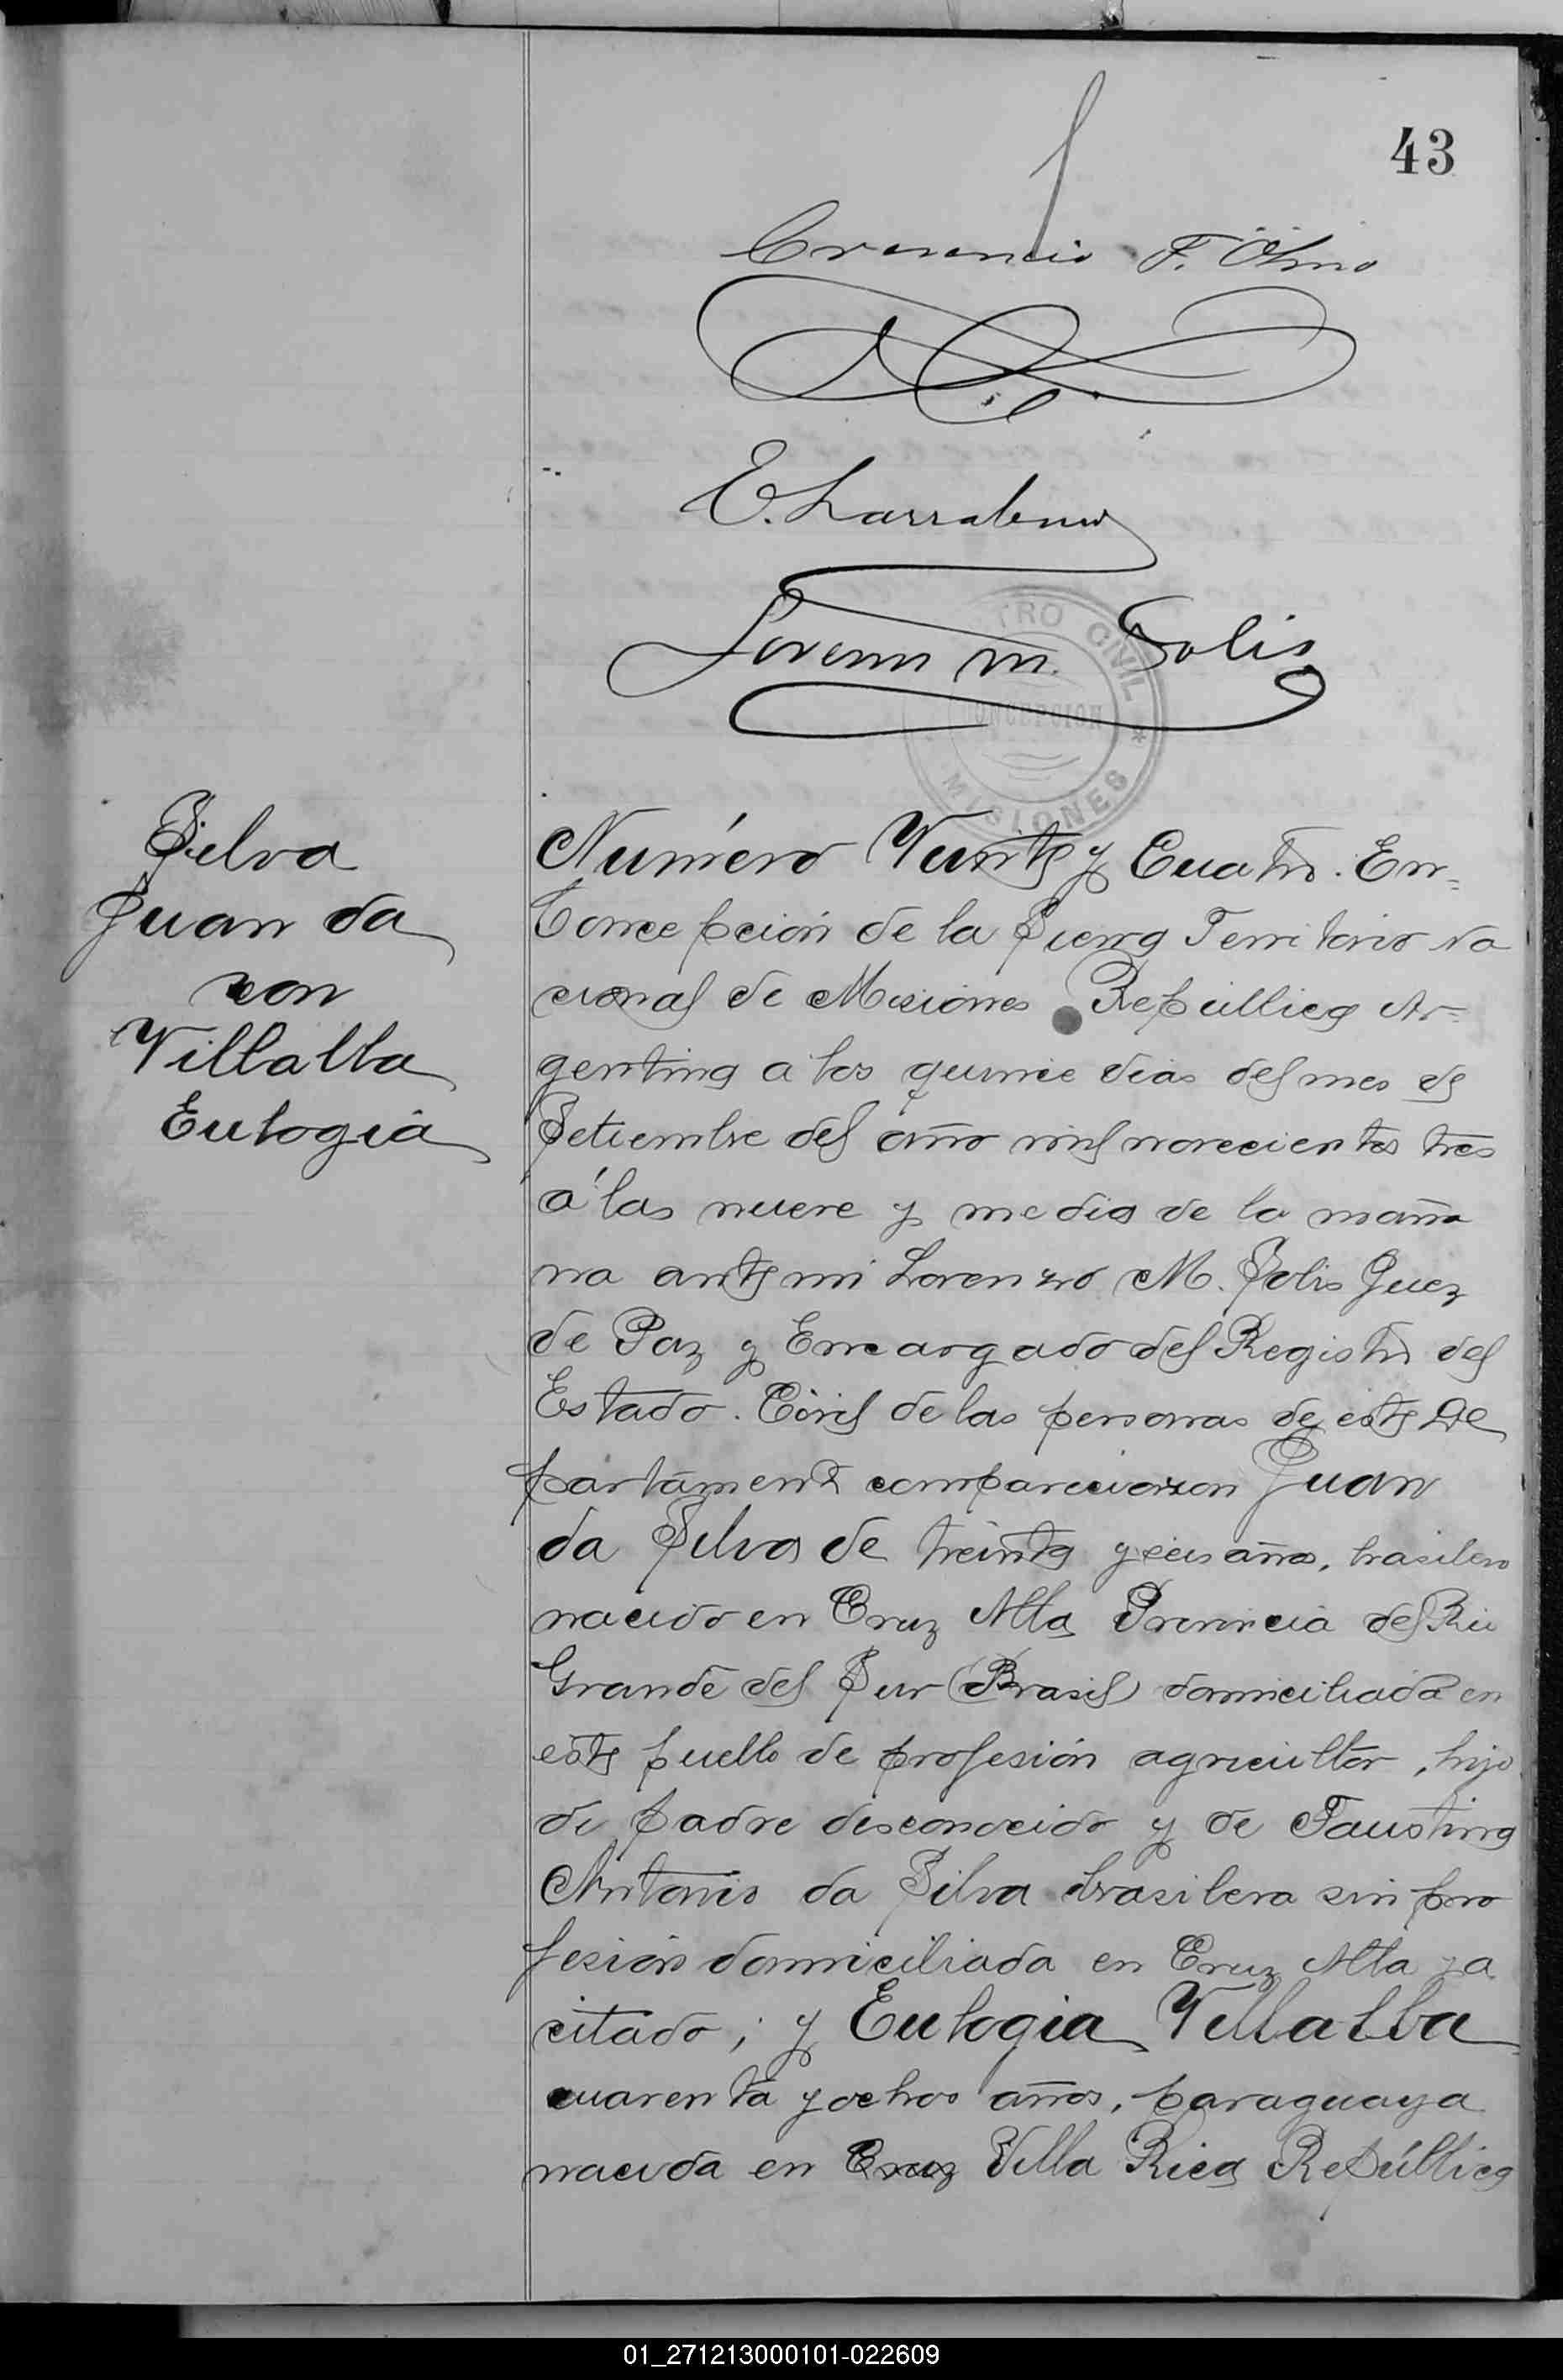 43
Crecencio F. Olmo
E. Larrabeure
Lorenzo M. Solis
TRO CIVIL
CONCEPCION
* MISIONES
Silva
Juan da
con
Villalba
Eulogia
Número Veinte y Cuatro. En=
Concepción de la Sierra Territorio Na
cional de Misiones República Ar=
gentina a los quince dias del mes de
Setiembre del año mil novecientos tres
á las nueve y media de la maña
na ante mi Lorenzo M. Solis Juez
de Paz y Encargado del Registro del
Estado Civil de las personas de este De
partamento comparecieron Juan
da Silva de treinta y seis años, brasilero
nacido en Cruz Alta Provincia del Rio
Grande del Sur (Brasil) domiciliada en
este pueblo de profesión agricultor, hijo
de padre desconocido y de Faustina
Antonia da Silva brasilera sin pro
fesión domiciliada en Cruz Alta ya
citado; y Eulogia Villalba
cuarenta y ochos años, paraguaya
nacida en Cruz Villa Rica República
01_271213000101-022609